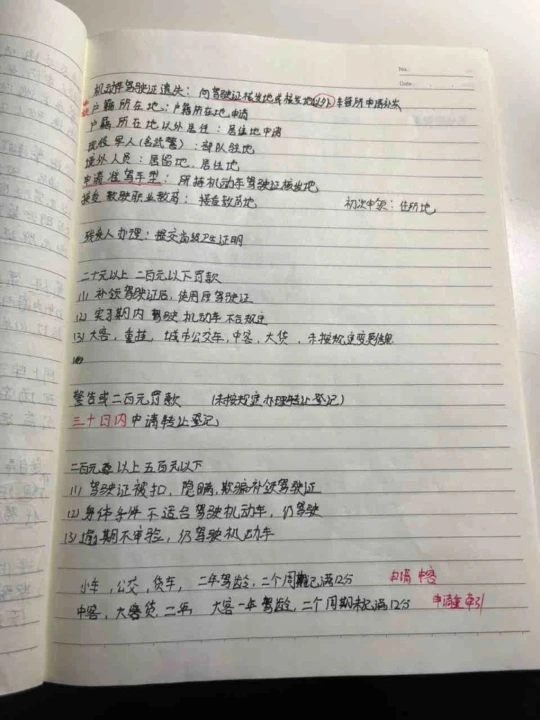 No.
Date.
机动车驾驶证遗失：向驾驶证核发地或核发地以外车管所申请补发
户籍所在地：户籍所在地申请
户籍所在地以外居住：居住地申请
现役军人(含武警)：部队驻地
境外人员：居留地、居住地
申请准驾车型：所持机动车驾驶证核发地
接受教驶职业教育：接受教育地 初次申领：住所地
残疾人办理：提交高级卫生证明
二十元以上 二百元以下罚款
(1) 补领驾驶证后，使用原驾驶证
(2) 实习期内驾驶机动车不合规定
(3) 大客，重挂，城市公交车，中客，大货，未按规定变更信息
警告或二百元罚款 (未按规定办理转让登记)
三十日内申请转让登记
二百元以上五百元以下
(1) 驾驶证被扣，隐瞒，欺骗补领驾驶证
(2) 身体条件不适合驾驶机动车，仍驾驶
(3) 逾期不审验，仍驾驶机动车
小车，公交，货车，二年驾龄，二个周期记满12分 申请 中客
中客，大货，二年，大客一年驾龄，三个周期未记满12分 申请重牵引